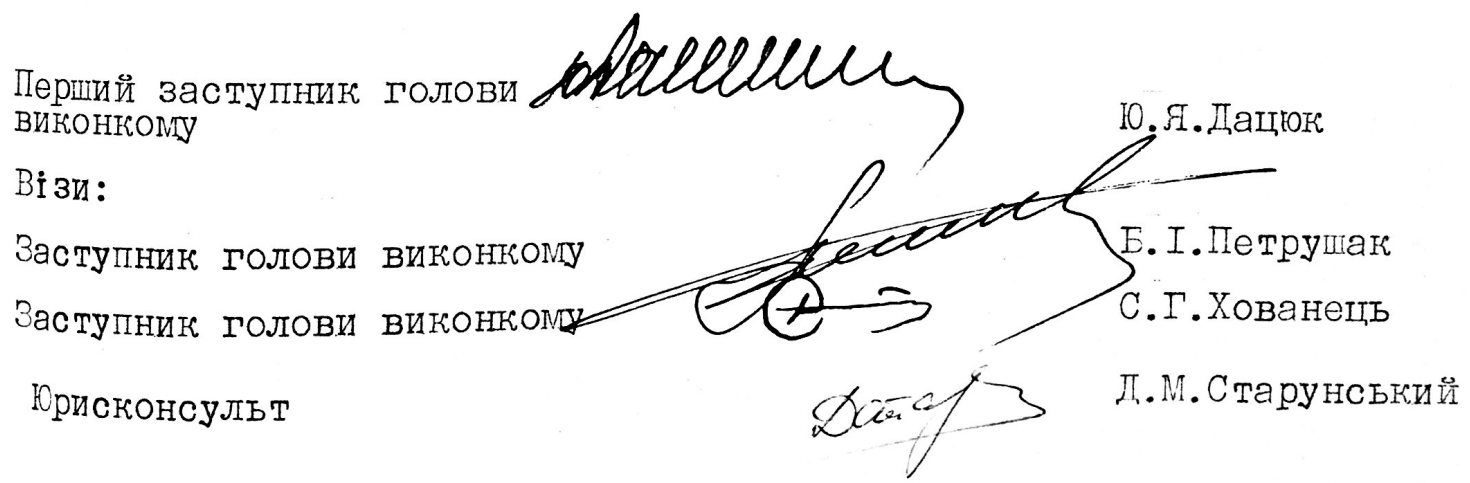 Перший заступник голови
виконкому Ю.Я.Дацюк
Візи:
Заступник голови виконкому Б.І.Петрушак
Заступник голови виконкому С.Г.Хованець
Юрисконсульт Д.М.Старунський